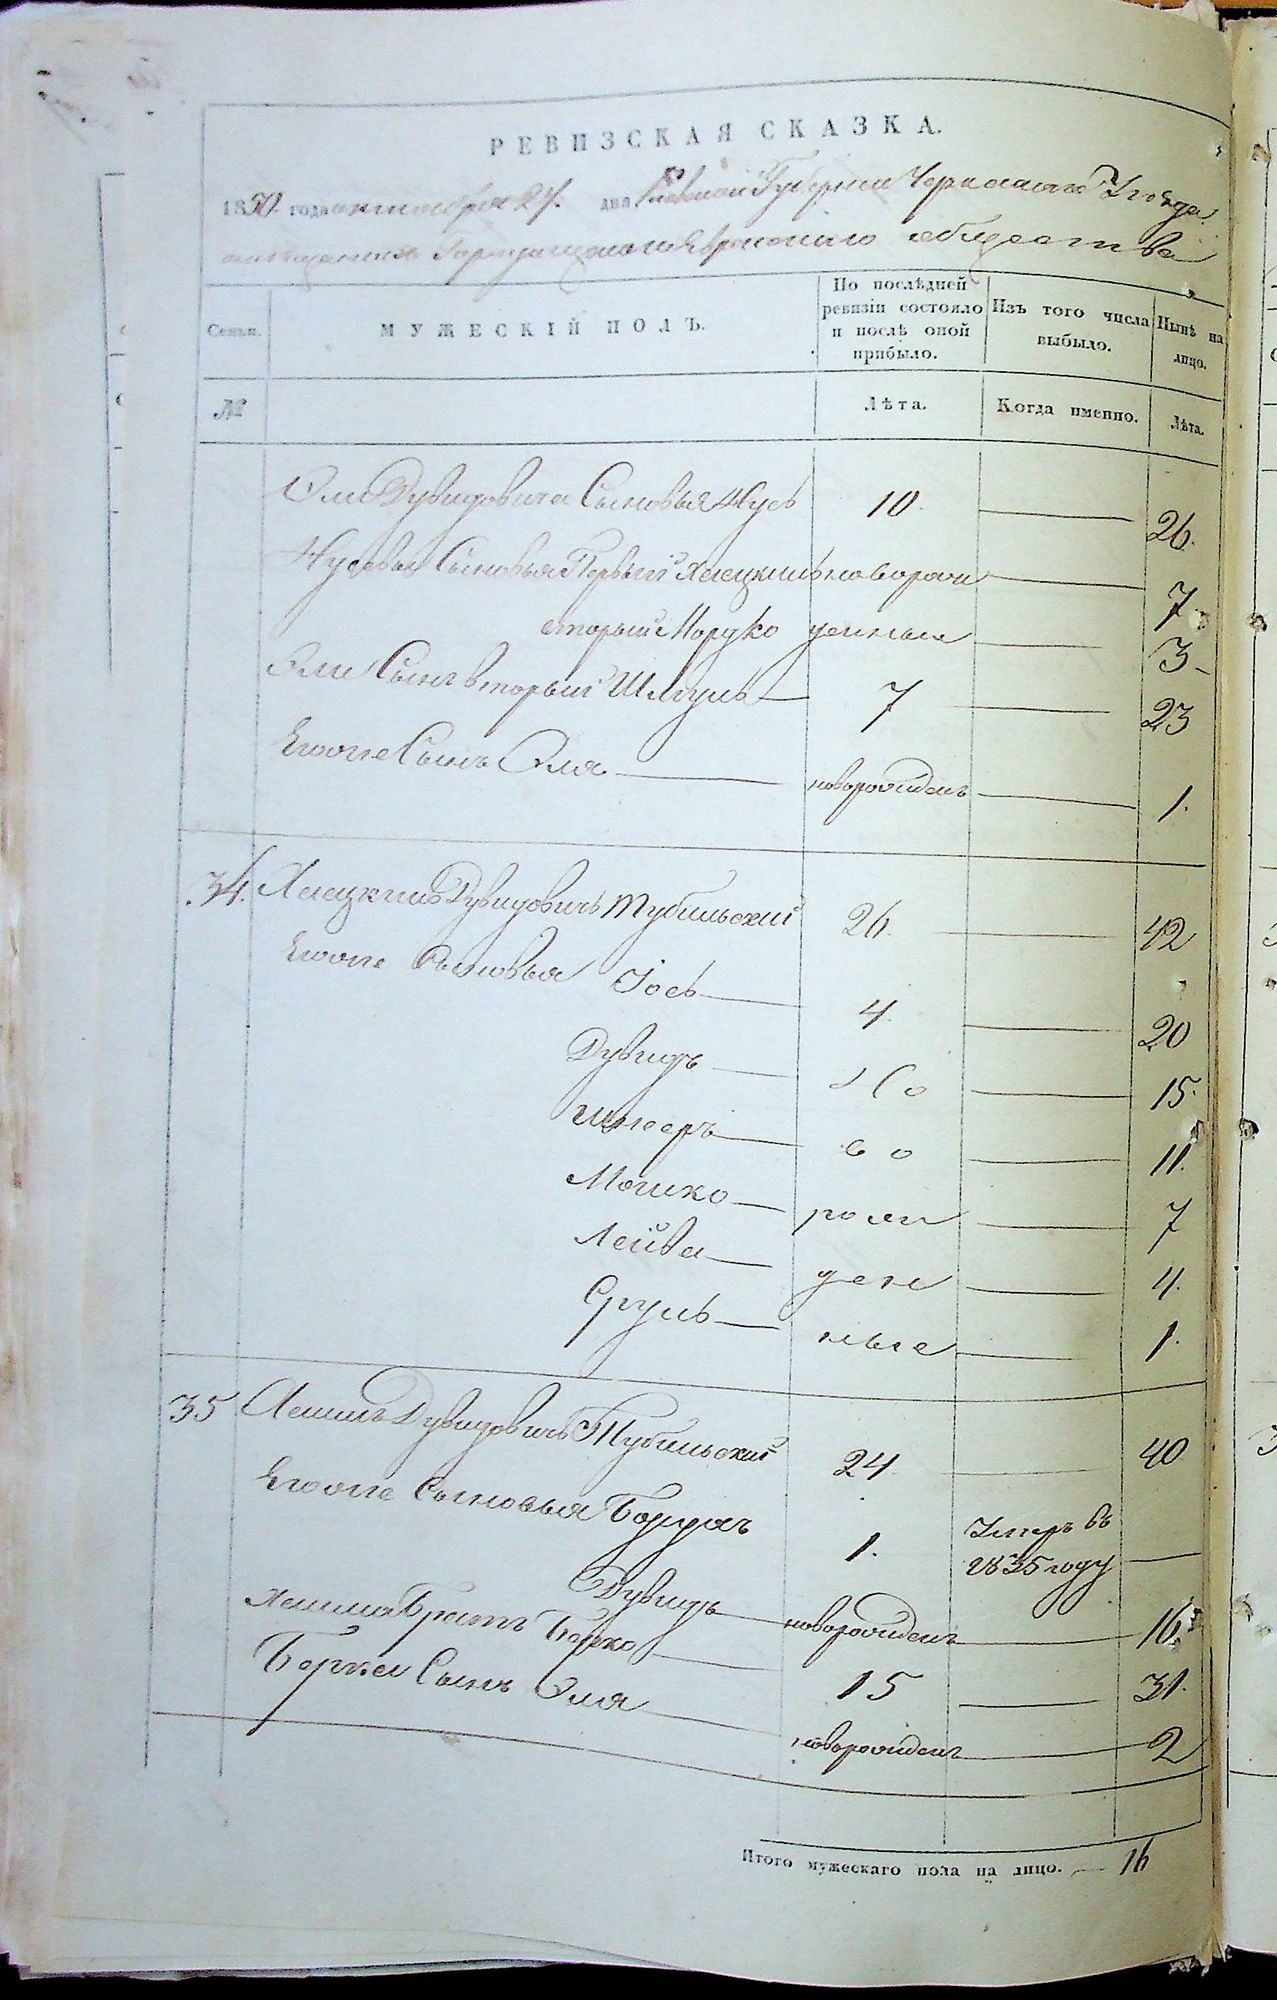 РЕВИЗСКАЯ СКАЗКА.
1850. года октября 24. дня Киевской Губернии Черкаскаго Уезда
мещанина Городищскаго Еврейскаго общества
Семьи.
МУЖЕСКІЙ ПОЛЪ.
По послѣдней ревизіи состояло и послѣ оной прибыло.
Изъ того числа выбыло.
Нынѣ на лицо.
№
Лѣта.
Когда именно.
Лѣта.
Эли Дувидовича Сыновья Нусь 10. 26.
Нусевы Сыновья Первый Хаецкиль новорож 7.
вторый Мордко денные 3
Эли Сынъ вторый Шмуль 7 23
Егоже Сынъ Эля новорожденъ 1.
34. Хаецкиль Дувидовичъ Тубильский 26. 42
Егоже Сыновья Іось 4. 20
Дувидъ но 15.
Шнеер во 11.
Мошко рож 7
Лейба ден 4.
Сруль ные 1.
35 Хаимъ Дувидовичъ Тубильский 24 40
Егоже Сыновья Борухъ 1. Умеръ въ 1835 году
Дувидъ новорожденъ 16.
Хаима Братъ Берко 15 31.
Берки Сынъ Эля новорожденъ 2
Итого мужескаго пола на лицо. 16